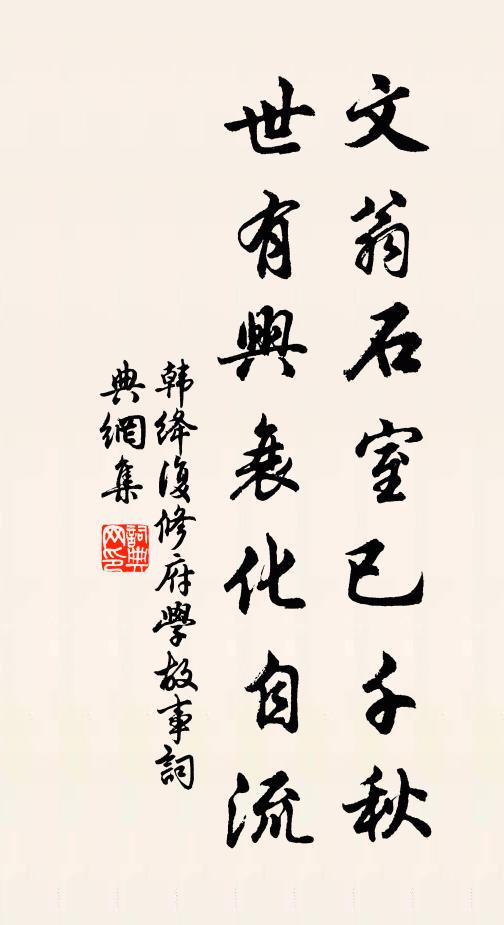 文翁石室已千秋
世有興衰化自流
韩绛復修府學故事詞
典網集
詞典網印